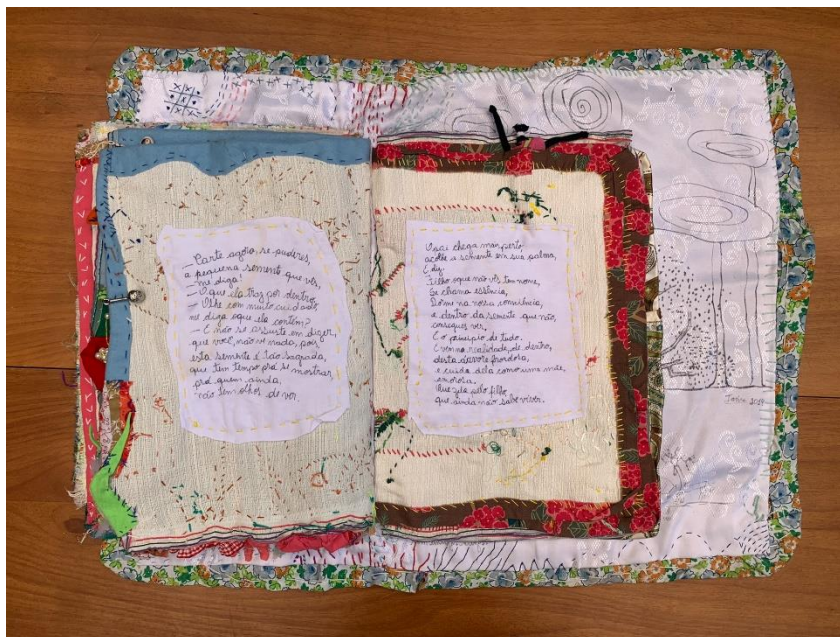 — Parte agora, se puderes,
a pequena semente que vês,
— me diga!
— O que ela traz por dentro,
— Olhe com muito cuidado,
me diga oque ela contém?
— E não se assuste em dizer,
que você, não vê nada, pois
esta semente é tão sagrada,
que tem tempo prá se mostrar
prá quem ainda,
não tem olhos de ver.
O pai chega mais perto,
acolhe a semente em sua palma,
E diz:
Filho oque não vês tem nome,
Se chama essência,
Dorme na nossa consciência,
e dentro da semente que não,
consegues ver,
É o princípio de tudo.
E vem na realidade, de dentro,
desta árvore frondosa,
e cuida dela como uma mãe,
amorosa,
Que zela pelo filho,
que ainda não sabe viver.
2019